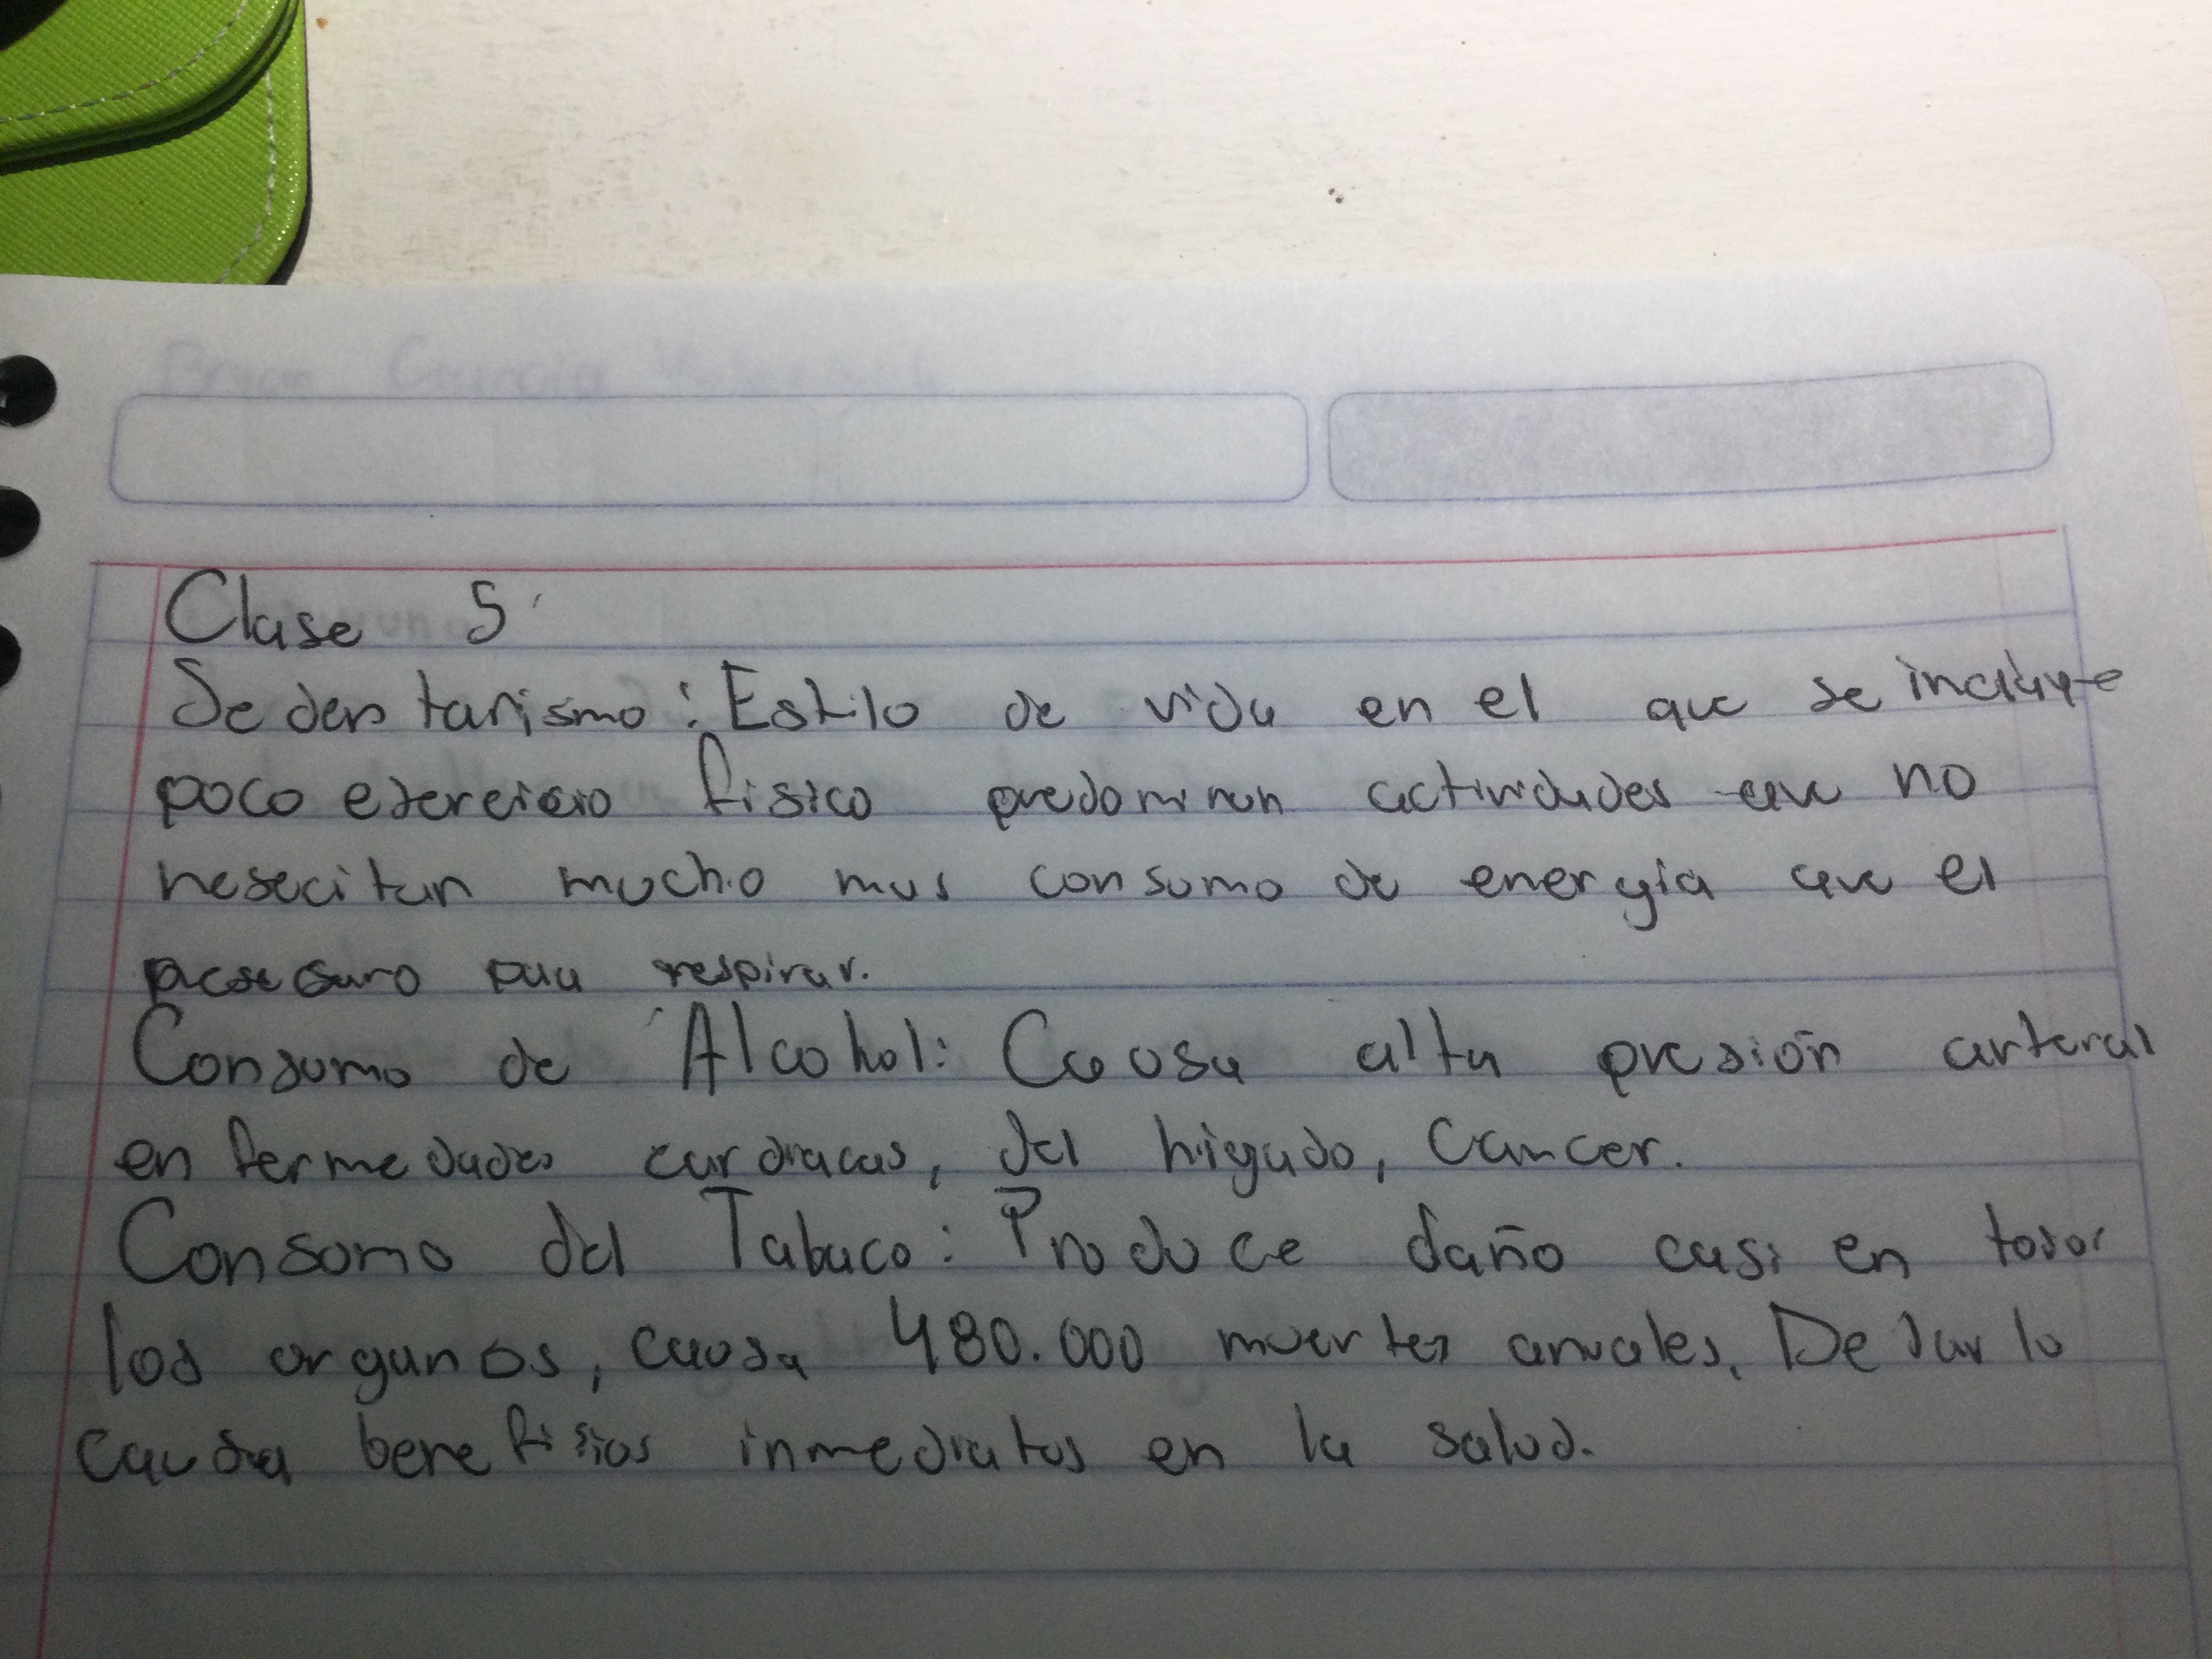 Clase 5
Sedentarismo: Estilo de vida en el que se incluye
poco ejercicio fisico predominan actividades que no
nesecitan mucho mas consumo de energia que el
para respirar.
Consumo de Alcohol: Causa alta presión arteral
enfermedades cardiacas, del higado, Cancer.
Consumo del Tabaco: Produce daño casi en todos
los organos, causa 480.000 muertes anuales. Dejarlo
causa benefisios inmediatos en la salud.